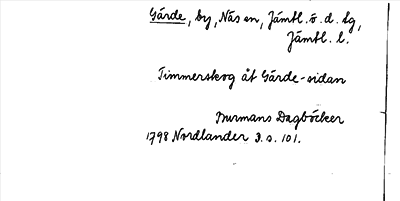 Gärde, by, Näs en, Jämtl. ö. d. tg,
Jämtl. l.
Timmerskog åt Gärde-sidan
Burmans Dagböcker
1798 Nordlander 3. s. 101.